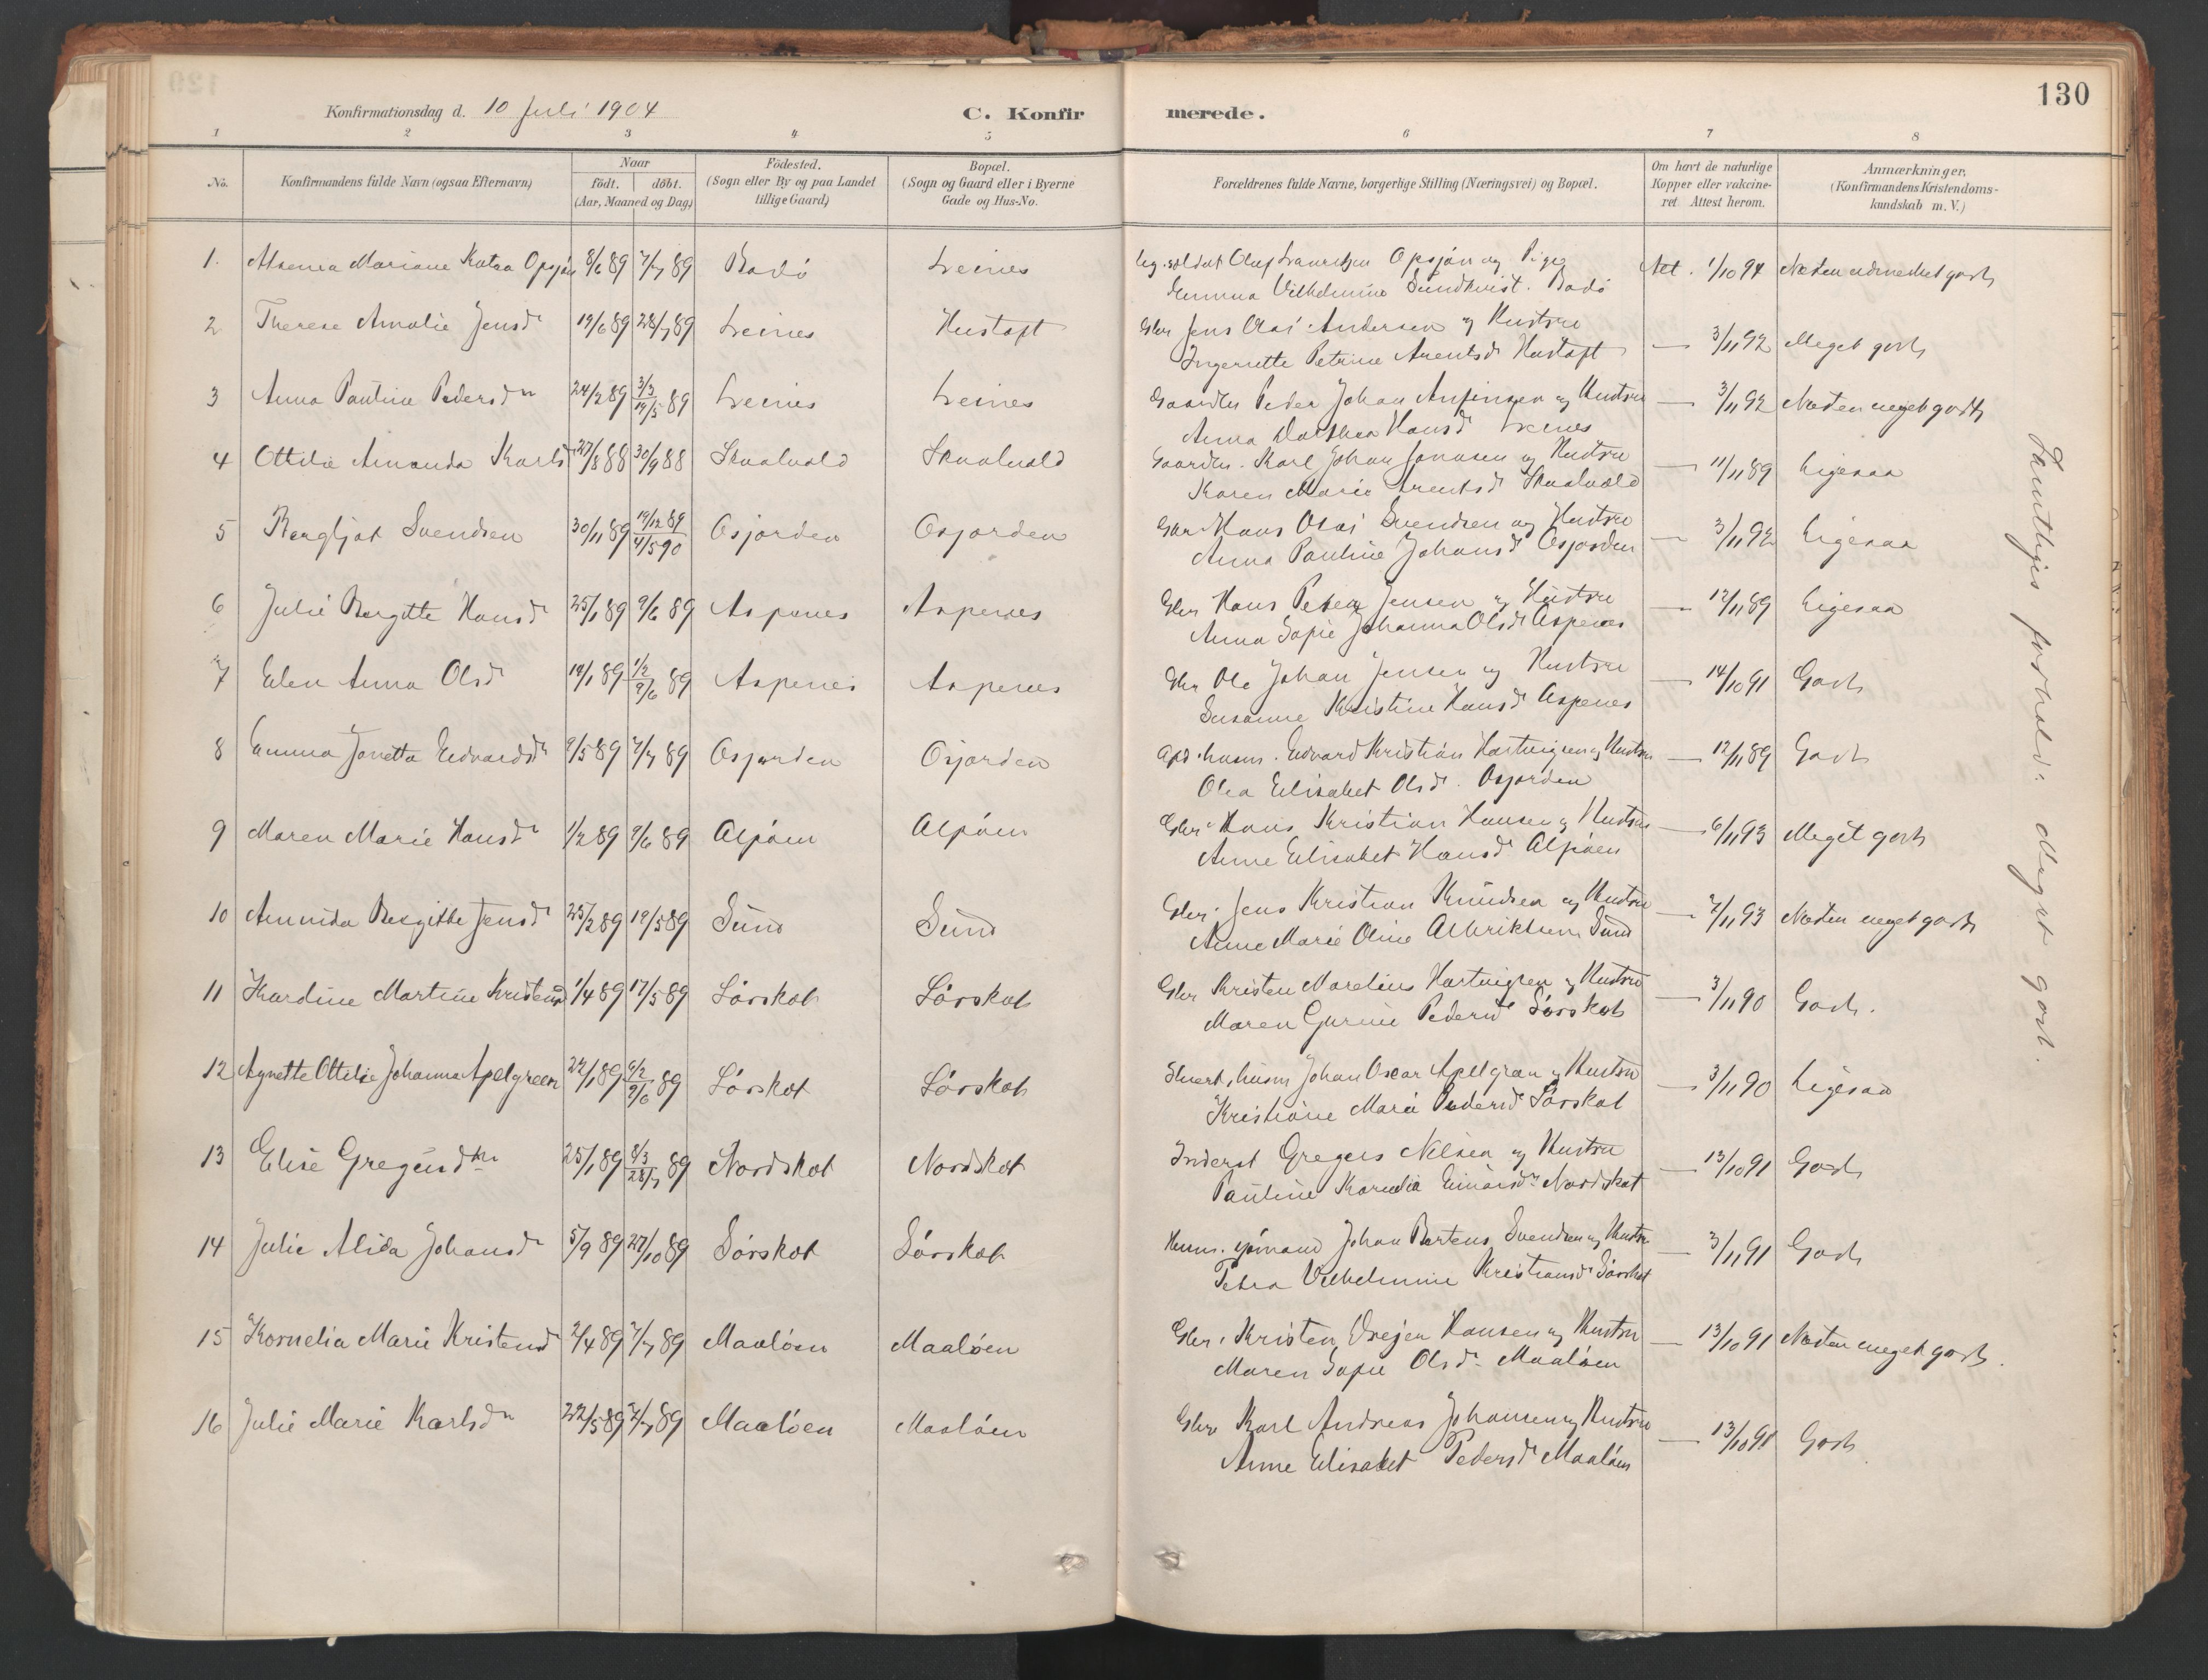 130
Konfirmationsdag d. 10 Juli 1904
C. Konfirmerede.
1 2 3 4 5 6 7 8
No. Konfirmandens fulde Navn (ogsaa Efternavn) Naar födt. döbt. (Aar, Maaned og Dag) Födested. (Sogn eller By og paa Landet tillige Gaard) Bopæl. (Sogn og Gaard eller i Byerne Gade og Hus-No. Forældrenes fulde Navne, borgerlige Stilling (Næringsvei) og Bopæl. Om havt de naturlige Kopper eller vakcineret. Attest herom. Anmærkninger, (Konfirmandens Kristendomskundskab m. V.)
1. Mariane Opsjøn 8/6 89 7/7 89 Bodö Leines Olaf Lauritzen Opsjøn og Pige Att. 1/10 94 Næsten udmerket godt
Emma Vilhelmine Sundkvist. Bodö
2 Therese Amalie Jensdr 19/6 89 28/7 89 Leines Hustoft Gbr Jens Olai Andersen og Hustru — 3/11 92 Meget godt
Ingerette Petrine Arentsdr Hustoft
3 Anna Pauline Pedersdr 24/2 89 3/3 19/5 89 Leines Leines Gaardbr Peder Johan Anfinsen og Hustru — 3/11 92 Næsten meget godt
Anna Dorthea Hansdr Leines
4 Ottilie Amanda Karlsdr 27/8 88 30/9 88 Skaalvold Skaalvold Gaardbr. Karl Johan Jonasen og Hustru — 11/11 89 Ligesaa
Karen Marie Arentsdr Skaalvold
5 Bergljot Svendsen 30/11 89 19/12 89 4/5 90 Osjorden Osjorden Gbr Hans Olai Svendsen og Hustru — 3/11 92 Ligesaa
Anna Pauline Johansdr Osjorden
6 Julie Bergitte Hansdr 25/1 89 9/6 89 Aspenes Aspenes Gbr Hans Peter Jensen og Hustru — 12/11 89 Ligesaa
Anna Sofie Johanna Olsdr Aspenes
7 Elen Anna Olsdr 19/1 89 1/2 9/6 89 Aspenes Aspenes Gbr Ole Johan Jensen og Hustru — 14/10 91 Godt
Susanne Kristine Hansdr Aspenes
8 Emma Jonetta Edvardsdr 9/5 89 7/7 89 Osjorden Osjorden husm. Edvard Kristian Hartvigsen og Hustru — 12/11 89 Godt
Olea Elisabet Olsdr. Osjorden
9 Maren Marie Hansdr 1/2 89 9/6 89 Alpöen Alpöen Gbr Hans Kristian Hansen og Hustru — 6/11 93 Meget godt
Anne Elisabet Hansdr Alpöen
10 Bergitte Jensdr 25/2 89 19/5 89 Sund Sund Gbr. Jens Kristian Knudsen og Hustru — 7/11 93 Næsten meget godt
Anne Marie Oline Albriktsen Sund
11 Kardine Martine Kristensdr 1/4 89 17/5 89 Lörskot Sörskot Gbr Kristen Norelius Hartvigsen og Hustru — 3/11 90 Godt.
Maren Gurine Pedersdr Sörskot
12 Agnette Ottilie Johanna Apelgreen 22/1 89 6/2 9/6 89 Sörskot Sörskot husm Johan Oscar Apelgren og Hustru — 3/11 90 Ligesaa
Kristiane Marie Pedersdr Sörskot
13 Elise Gregersdtr 25/1 89 8/3 28/7 89 Nordskot Nordskot Inderst Gregers Nilsen og Hustru — 13/10 91 Godt
Pauline Kornelia Nordskot
14 Julie Alida Johansdr 5/9 89 27/10 89 Sörskot Sörskot Husm. Johan Bertens Svendsen og Hustru — 3/11 91 Godt
Petra Vilhelmine Kristiansdr Sörskot
15 Kornelia Marie Kristensdr 2/4 89 7/7 89 Maalöen Maalöen Gbr. Kristen Hansen og Hustru — 13/10 91 Næsten meget godt.
Maren Sofie Olsdr Maalöen
16 Julie Marie Karlsdr 22/5 89 7/7 89 Maalöen Maalöen Gbr Karl Andreas Johansen og Hustru — 13/10 91 Godt
Anne Elisabet Pedersdr Maalöen
Samtliges forhold: Meget godt.